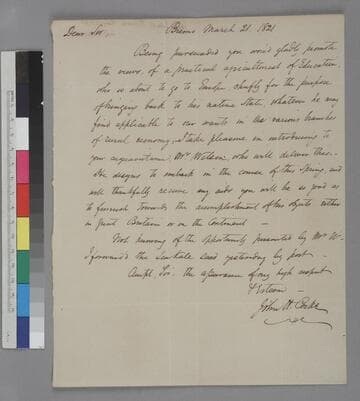 Dear Sir, Bremo March 21. 1821
Being persuaded you would gladly promote
the views of a practical agriculturist of Education,
who is about to go to Europe chiefly for the purpose
of bringing back to his native State whatever he may
find applicable to our wants in the various branches
of rural economy, I take pleasure in introducing to
your acquaintance Mr. Wilson, who will deliver this.
He designs to embark in the course of this Spring, and
will thankfully receive any aids you will be so good as
to furnish towards the accomplishment of his objects either
in Great Britain or on the Continent —
Not knowing of the opportunity presented by Mr. W-
I forwarded the Seakale Seed yesterday by post -
Accept, Sir, the assurance of my high respect
& Esteem —
John H. Cocke